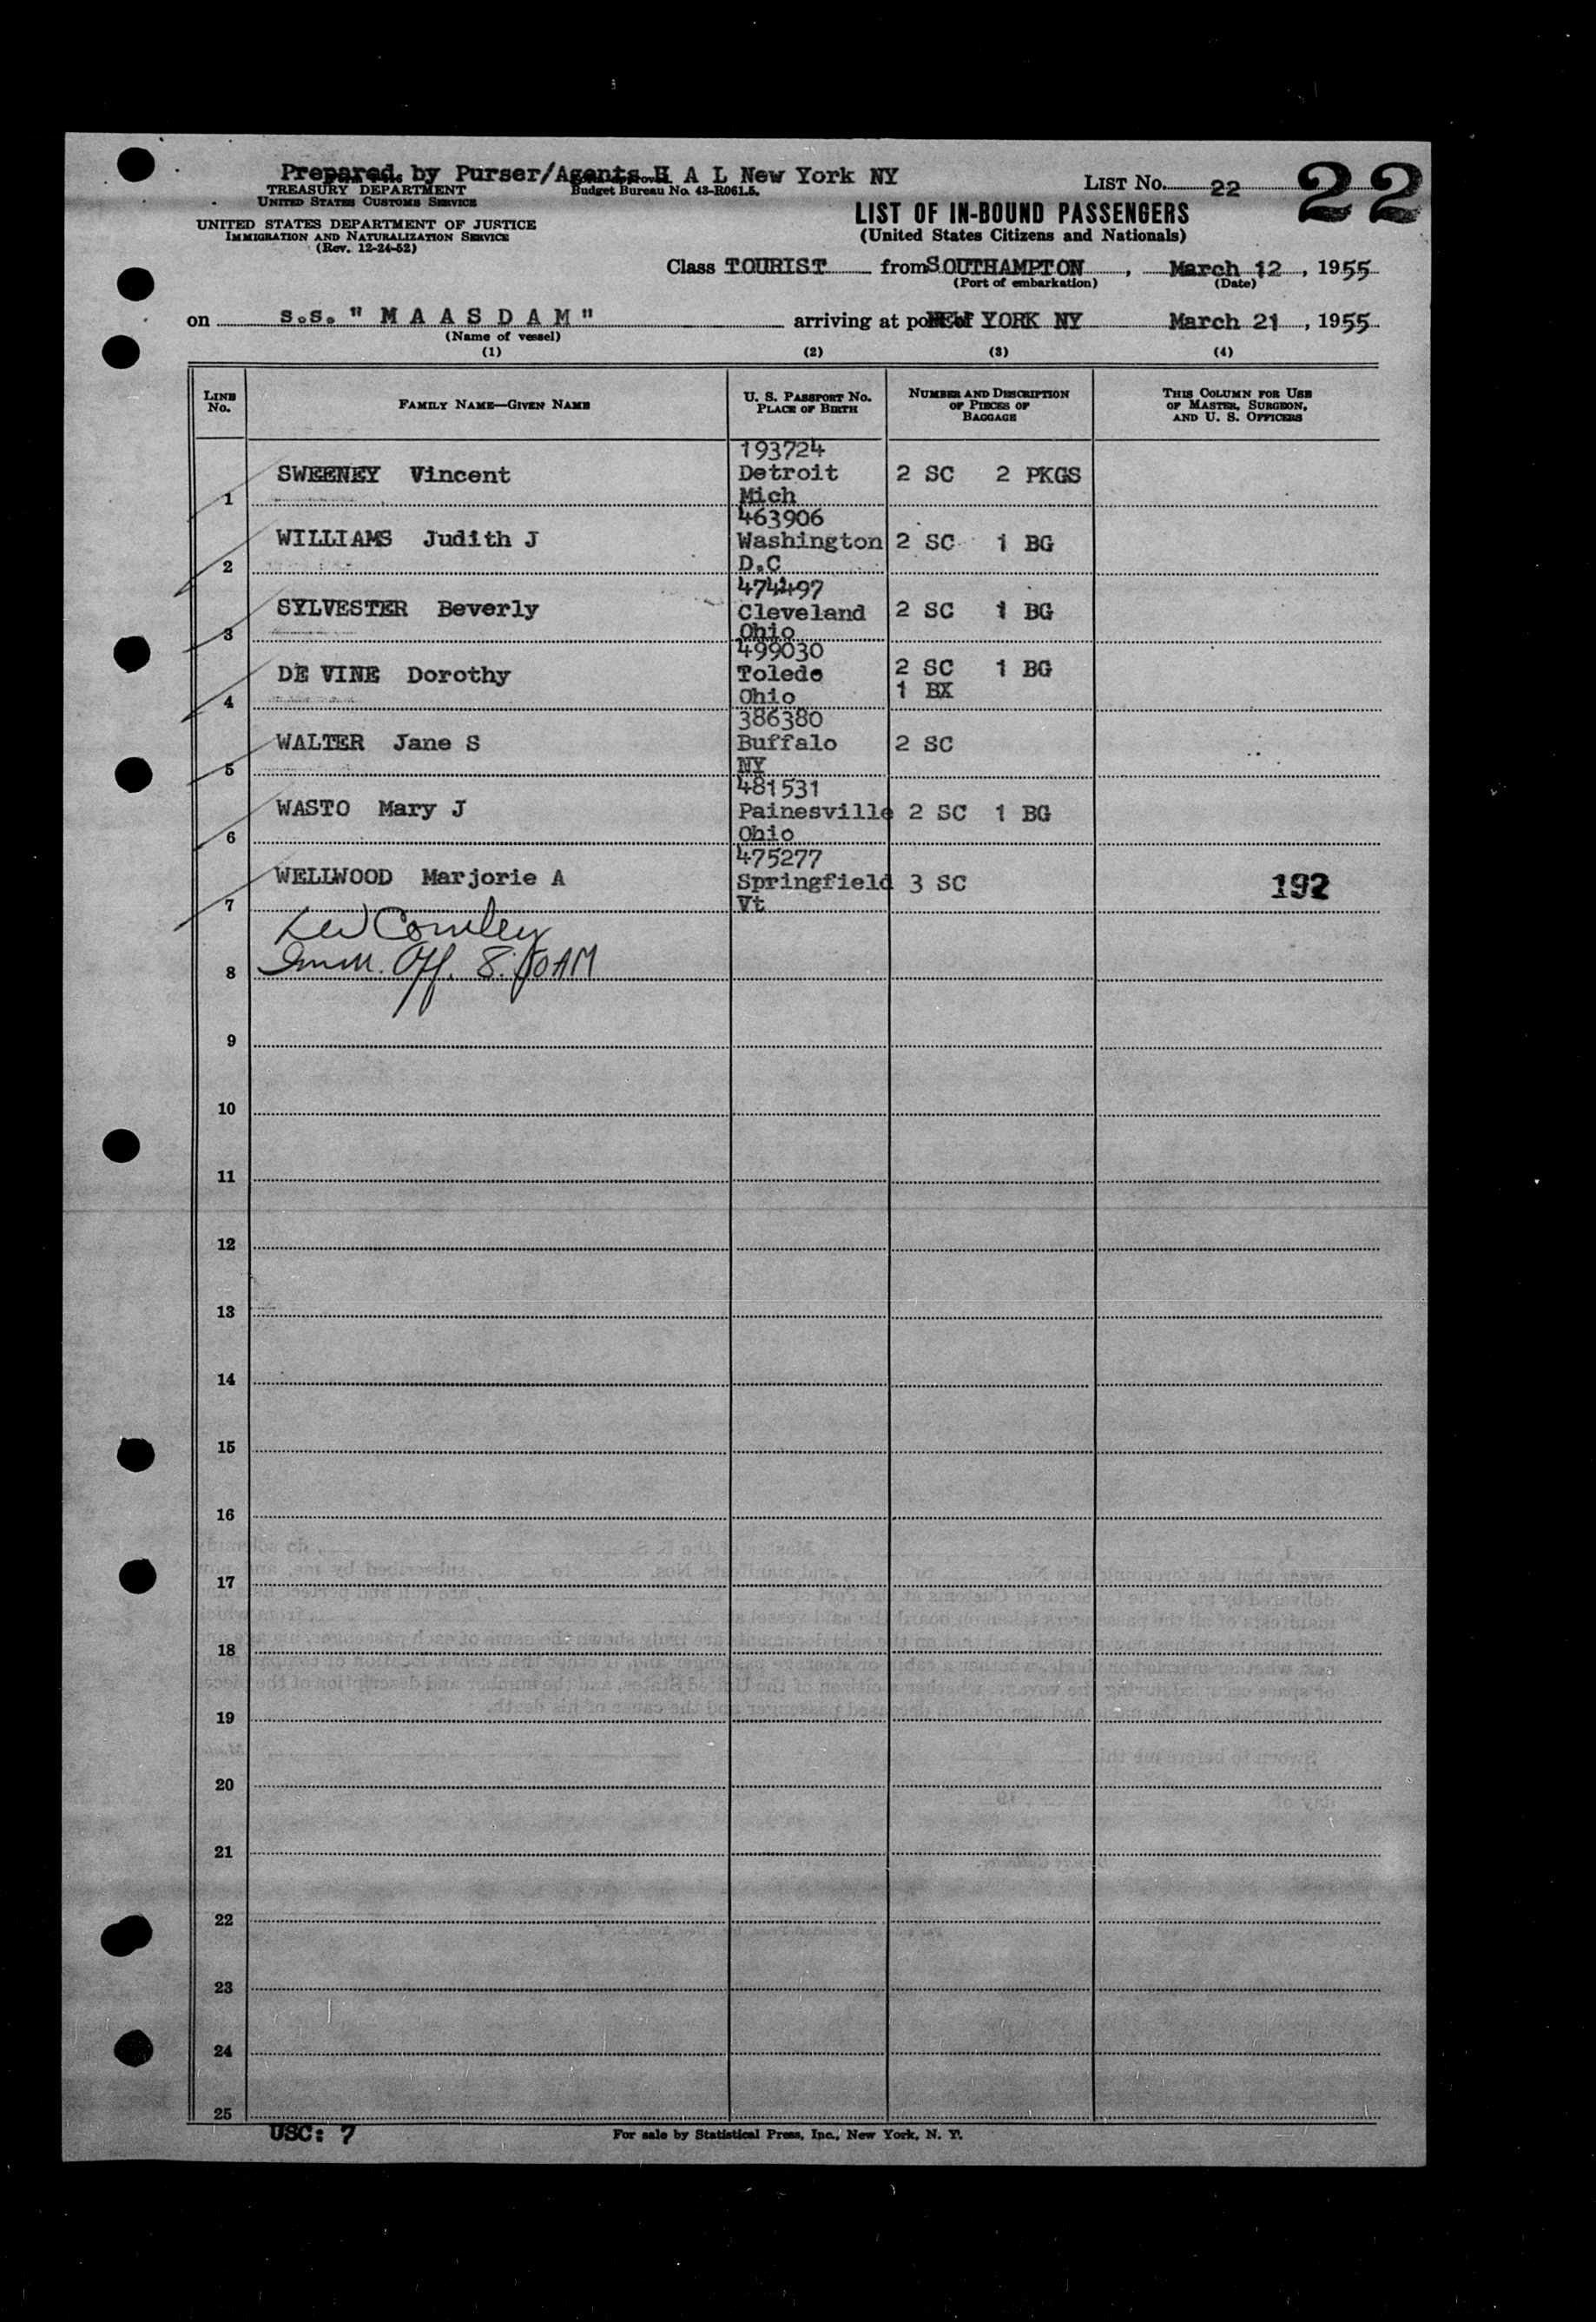 Prepared by Purser/Agents H A L New York NY
TREASURY DEPARTMENT
UNITED STATES CUSTOMS SERVICE
Budget Bureau No. 43-R061.5.
LIST No. 22
22
UNITED STATES DEPARTMENT OF JUSTICE
IMMIGRATION AND NATURALIZATION SERVICE
(Rev. 12-24-52)
LIST OF IN-BOUND PASSENGERS
(United States Citizens and Nationals)
Class TOURIST from SOUTHAMPTON, March 12, 1955
(Port of embarkation) (Date)
on s.s. " M A A S D A M " arriving at port of NEW YORK NY March 21, 1955
(Name of vessel)
(1) (2) (3) (4)
LINE No. FAMILY NAME—GIVEN NAME U. S. PASSPORT No. PLACE OF BIRTH NUMBER AND DESCRIPTION OF PIECES OF BAGGAGE THIS COLUMN FOR USE OF MASTER, SURGEON, AND U. S. OFFICERS
193724
SWEENEY Vincent Detroit 2 SC 2 PKGS
1 Mich
463906
WILLIAMS Judith J Washington 2 SC 1 BG
2 D.C
474497
SYLVESTER Beverly Cleveland 2 SC 1 BG
3 Ohio
499030
DE VINE Dorothy Toledo 2 SC 1 BG
4 Ohio 1 BX
386380
WALTER Jane S Buffalo 2 SC
5 NY
481531
WASTO Mary J Painesville 2 SC 1 BG
6 Ohio
475277
WELLWOOD Marjorie A Springfield 3 SC 192
7 Vt
8 Imm. Off. AM
9
10
11
12
13
14
15
16
17
18
19
20
21
22
23
24
25
USC: 7 For sale by Statistical Press, Inc., New York, N. Y.